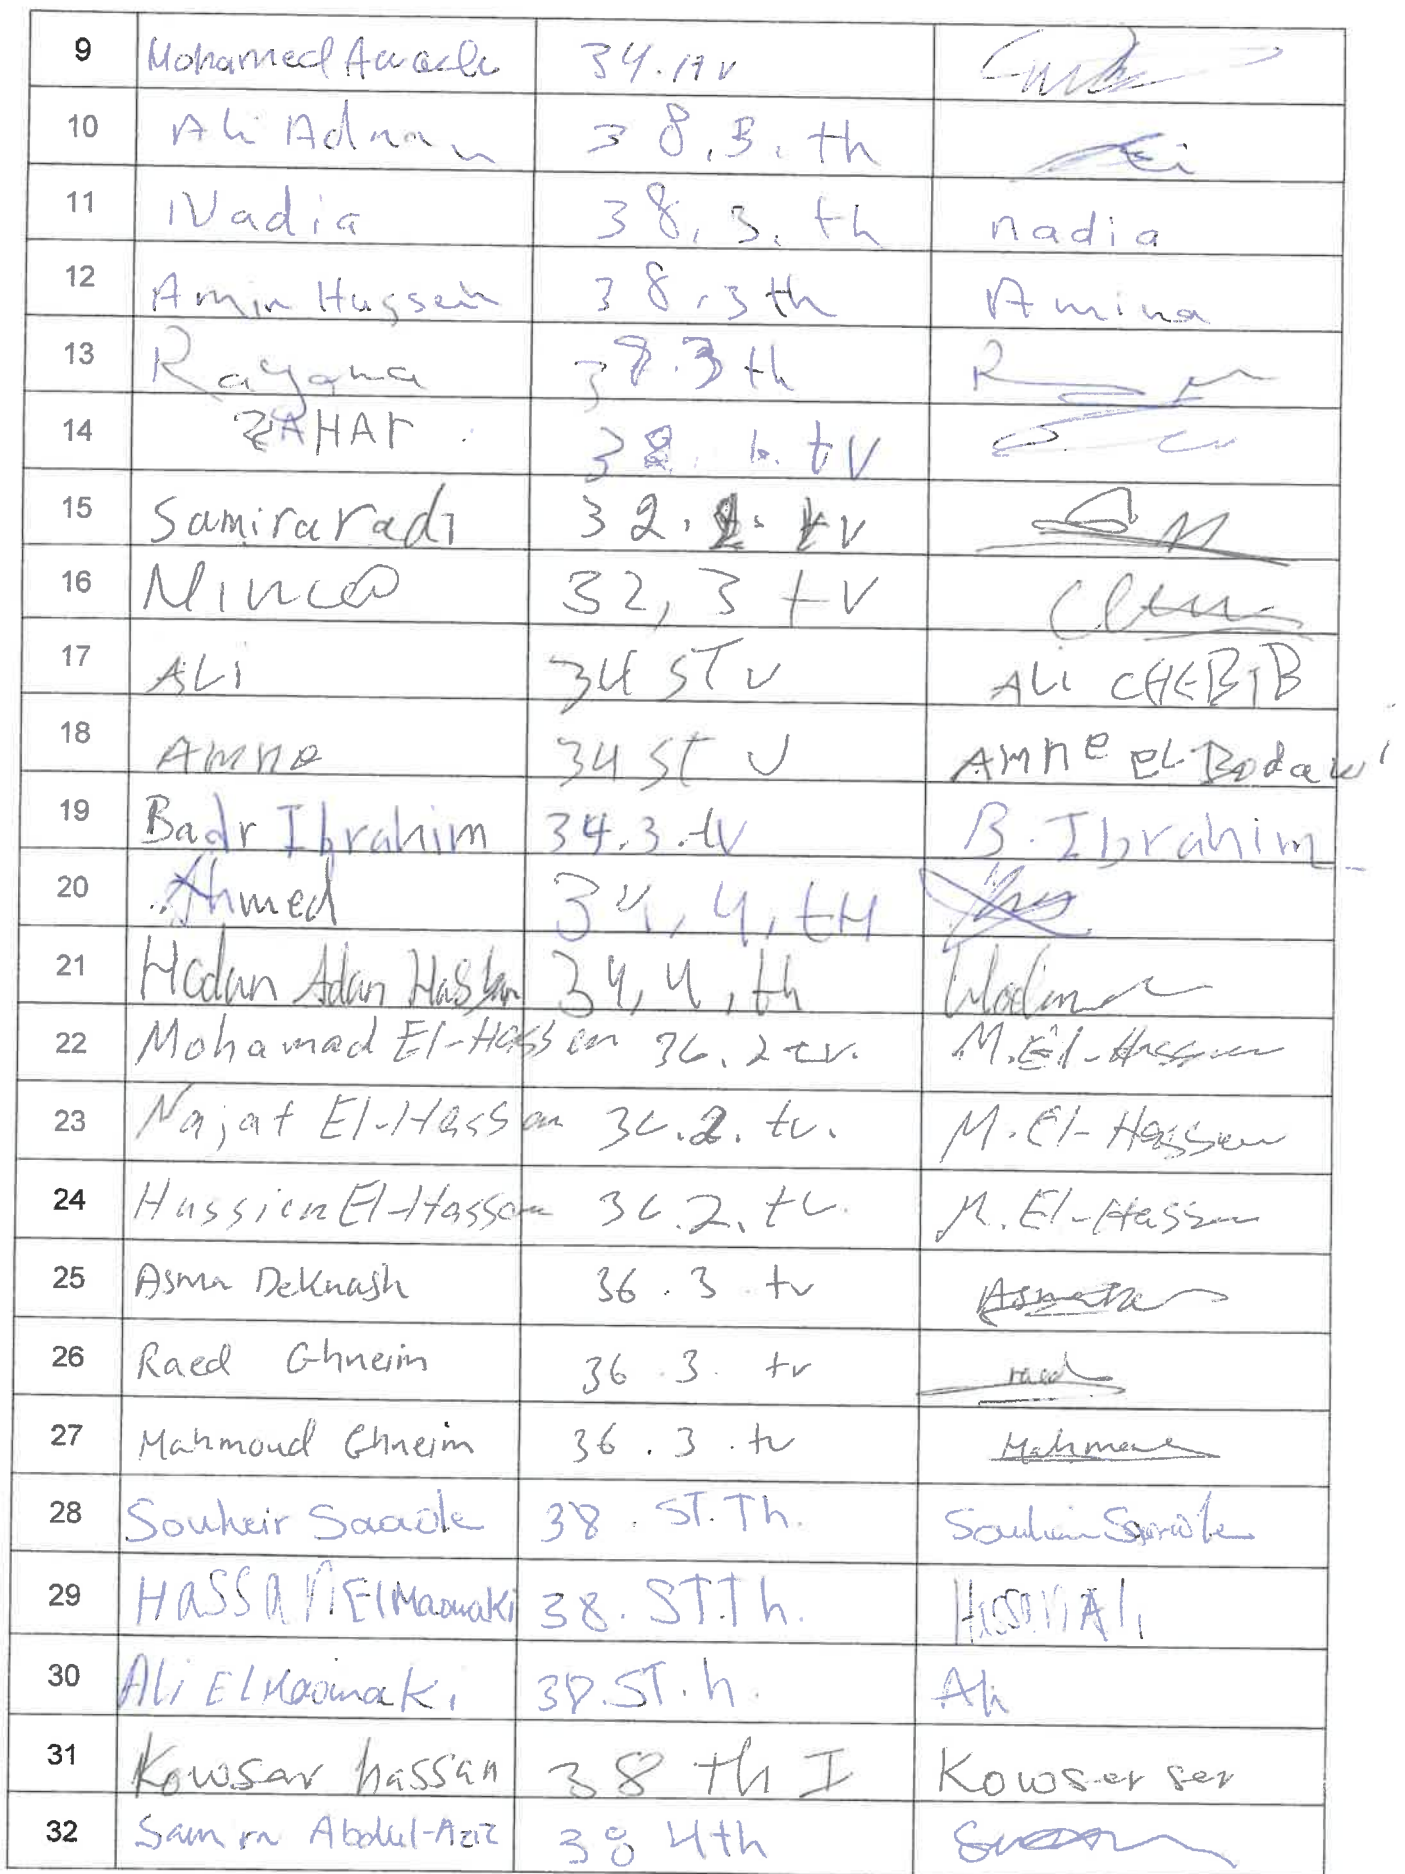 9 Mohamed 34.
10 Ali Adnan 38.3. th
11 Nadia 38.3. th nadia
12 Amin Hussein 38.3 th Amina
13 Rayana 38.3 th
14 ZAHAr 38. tv
15 Samira radi 32. tv
16 32,3 tv
17 ALi 34 ST v ALi CHEBIB
18 Amne 34 ST V Amne EL-Bodawi
19 Badr Ibrahim 34.3.tv B. Ibrahim
20 Ahmed 34,4,tH
21 Hodan Adan Hassan 34,4,th
22 Mohamad El-Hassan 36.2 tv. M.El-Hassan
23 Najat El-Hassan 36.2. tv. M.El-Hassan
24 Hussien El-Hassan 36.2. tv. M.El-Hassan
25 Asma Deknash 36.3.tv
26 Raed Ghneim 36.3.tv raed
27 Mahmoud Ghneim 36.3.tv
28 Souheir Saade 38. ST.Th.
29 HASSAN 38. ST.Th. Hassan Ali
30 Ali 38.ST.h. Ali
31 Kowsar hassan 38 th I Kowser ser
32 Abdul-Aziz 38 4th